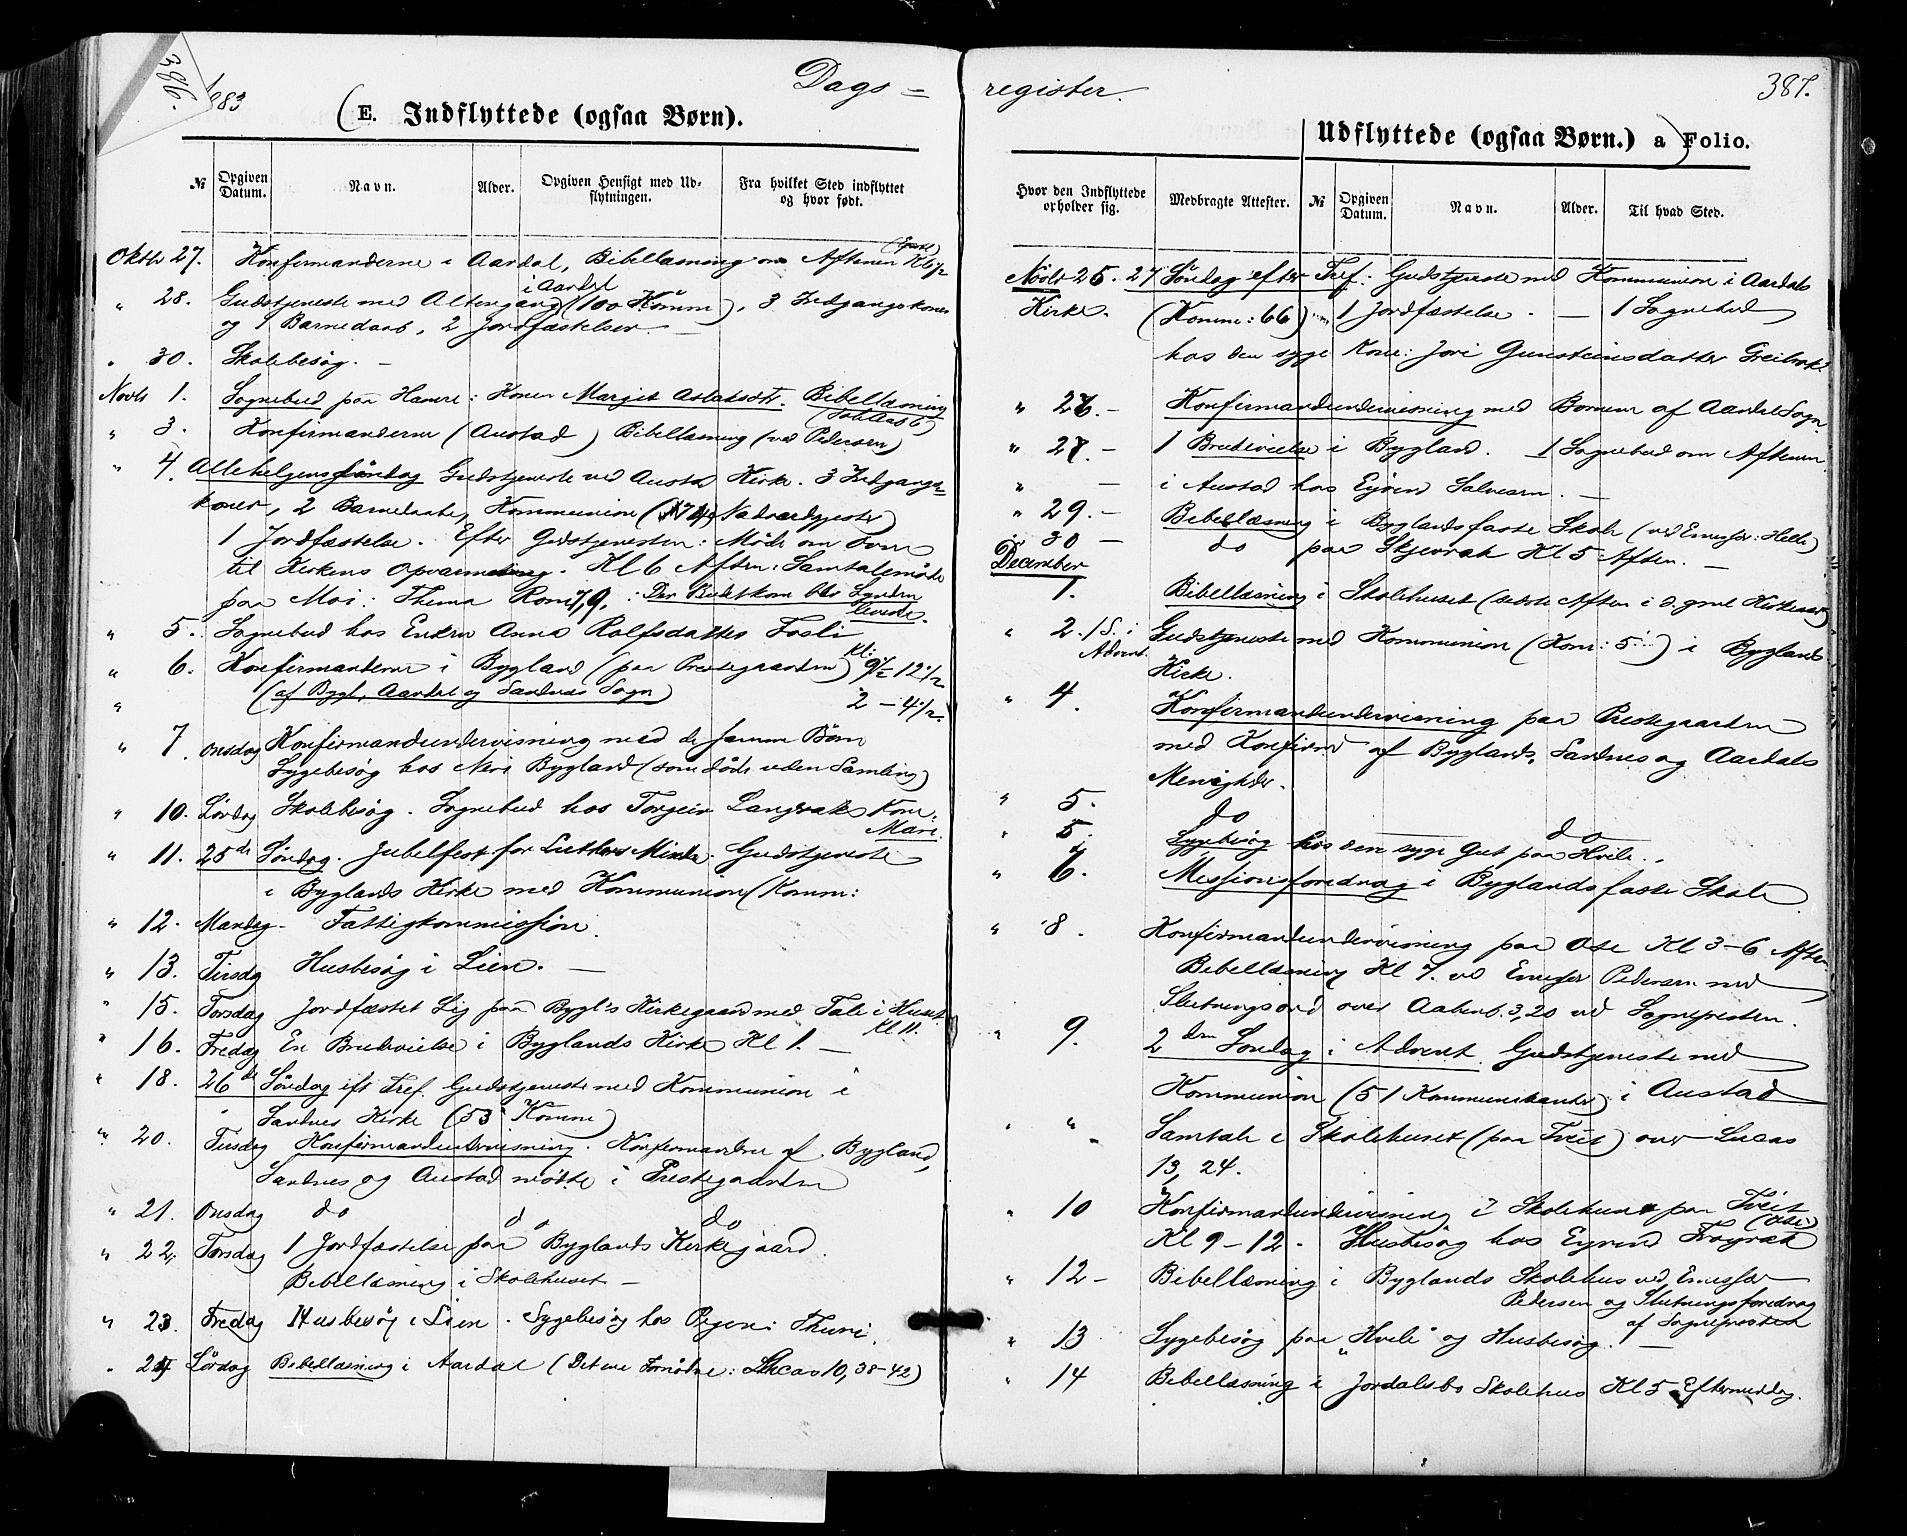 386.
1883
Dags =
(E. Indflyttede (ogsaa Børn).
№
Opgiven Datum.
Navn.
Alder.
Opgiven Hensigt med Udflytningen.
Fra hvilket Sted indflyttet og hvor født.
Oktb 27. Konfirmanderne i Aardal, Bibellæsning om Aftenen Kl 6 1/2
i Aardal
" 28. Gudstjeneste med Altergang (100 Komm), 3 Indgangskoner
og 1 Barnedaab, 2 Jordfæstelser —
" 30. Skolebesøg. —
Novb 1. Sognebud paa Hamre: Konen Margit Aslaksdt. Bibellæsning
" 3. Konfirmanderne (Austad) Bibellæsning (ved Pedersen)
" 4. Allehelgenssöndag Gudstjeneste ved Austad Kirke. 3 Indgangs=
koner, 2 Barnedaab, Kommunion (Nadverdgjester)
1 Jordfæstelse. Efter Gudstjenesten: Møde om Ovn
til Kirkens Opvarmning. Kl 6 Aften: Samtalemøde
paa Moi: Thema Rom 7,9. : Der Budet kom blev Synden
levende.
" 5. Sognebud hos Enken Anna Rolfsdatter Fosli
" 6. Konfirmanderne i Bygland (paa Prestegaarden) Kl: 9 1/2 - 12 1/2
" (af Bygl, Aardal og Sandnes Sogn) 2 – 4 1/2.
" 7. Onsdag Konfirmandundervisning med de samme Børn
Sygebesøg hos Neri Bygland (som døde uden Samling)
" 10. Lørdag Skolebesøg. Sognebud hos Torgeir Langeraks Kone:
Mari.
" 11. 25de Söndag. Jubelfest for Luthers Minde. Gudstjeneste
i Byglands Kirke med Kommunion (Komm:
" 12. Mandag. Fattigkommission.
" 13. Tirsdag Husbesøg i Lien. —
" 15. Torsdag Jordfæstet Lig paa Bygl's Kirkegaard med Tale i Huset
Kl 11.
" 16. Fredag En Brudevielse i Byglands Kirke Kl 1. —
" 18. 26de Söndag eft Tref. Gudstjeneste med Kommunion i
Sandnes Kirke (53 Komm)
" 20. Tirsdag Konfirmandundervisning. Konfirmander af Bygland,
Sandnes og Austad mötte i Prestegaarden
" 21. Onsdag do do do
" 22. Torsdag 1 Jordfæstelse paa Byglands Kirkegaard.
Bibellæsning i Skolehuset —
" 23. Fredag Husbesøg i Lien. Sygebesøg hos i Thuni.
" 24 Lørdag Bibellæsning i Aardal (Det ene Fornødne: Lucas 10, 38–42)
register.
387.
Udflyttede (ogsaa Børn.) a) Folio.
Hvor den Indflyttede opholder sig.
Medbragte Attester.
№
Opgiven Datum.
Navn.
Alder.
Til hvad Sted.
Novb 25. 27 Söndag efter Tref: Gudstjeneste med Kommunion i Aardals
Kirke. (Komm: 66) 1 Jordfæstelse. — 1 Sognebud
hos den syge Kone: Jori Gunsteinsdatter Greibrok.
" 26. – Konfirmandundervisning med Børnene af Aardal Sogn.
" 27. – 1 Brudevielse i Bygland. 1 Sognebud om Aftenen
" – i Austad hos Eyvind Salvesen. —
" 29. – Bibellæsning i Byglands faste Skole (ved Emissær: Helle)
" 30 – do paa Skjevrak Kl 5 Aften. —
December
1. Bibellæsning i Skolehuset (
" 2. 1 S. i Advent Gudstjeneste med Kommunion (Kom: 5 ) i Byglands
Kirke.
" 4. Konfirmandundervisning paa Prestegaarden
med Konfirmd af Byglands, Sandnes og Aardals
Menigheder.
" 5. do do
" 5. Sygebesøg hos den syge Gut paa Hvile.
" 6. Missionsforedrag i Byglands faste Skole
" 8. Konfirmandundervisning paa Ose Kl 3–6 Aften.
Bibellæsning Kl 7. ved Emissær Pedersen med
Slutningsord over Aabenb. 3,20 ved Sognepresten.
" 9. 2den Söndag i Advent. Gudstjeneste med
Kommunion (51 Kommunikanter) i Austad
" " Samtale i Skolehuset (paa Tveit) over Lucas
13, 24.
" 10 Konfirmandundervisning i Skolehuset paa Tveit
(Ose)
Kl 9–12. Husbesøg hos Eyvind Frøyrak
" 12 – Bibellæsning i Byglands Skolehus ved Emissær
Pedersen og Slutningsforedrag
af Sognepresten
" 13 Sygebesøg paa "Hvile" og Husbesøg. —
" 14 Bibellæsning i Jordalsbø Skolehus Kl 5 Eftermiddag.